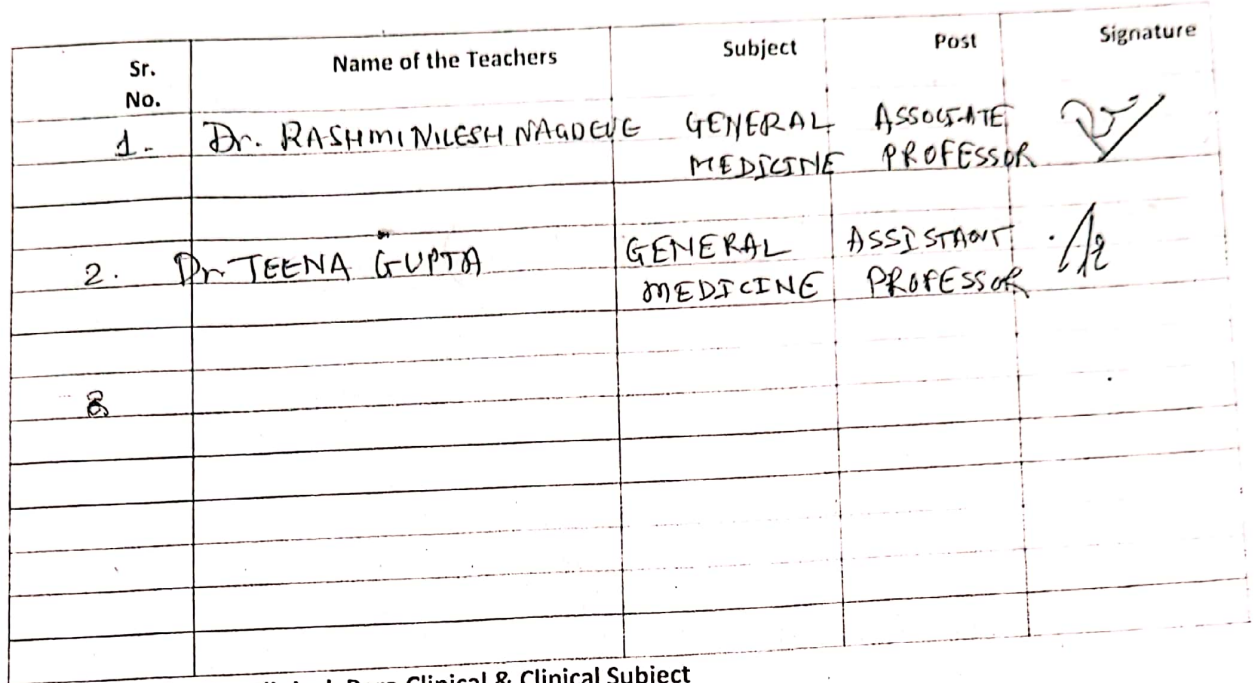 Sr. No. Name of the Teachers Subject Post Signature
1. Dr. RASHMI NILESH NAGDEVE GENERAL ASSOCIATE
MEDICINE PROFESSOR
2. Dr TEENA GUPTA GENERAL ASSISTANT
MEDICINE PROFESSOR
Clinical & Clinical Subject